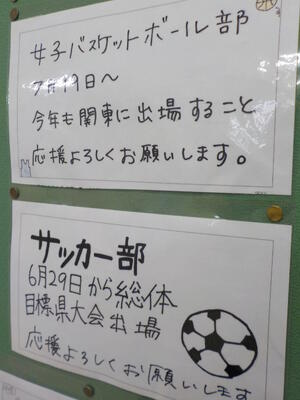 女子バスケットボール部
7月19日～
今年も関東に出場すること
応援よろしくお願いします。
サッカー部
6月29日から総体
目標県大会出場
応援よろしくお願いします